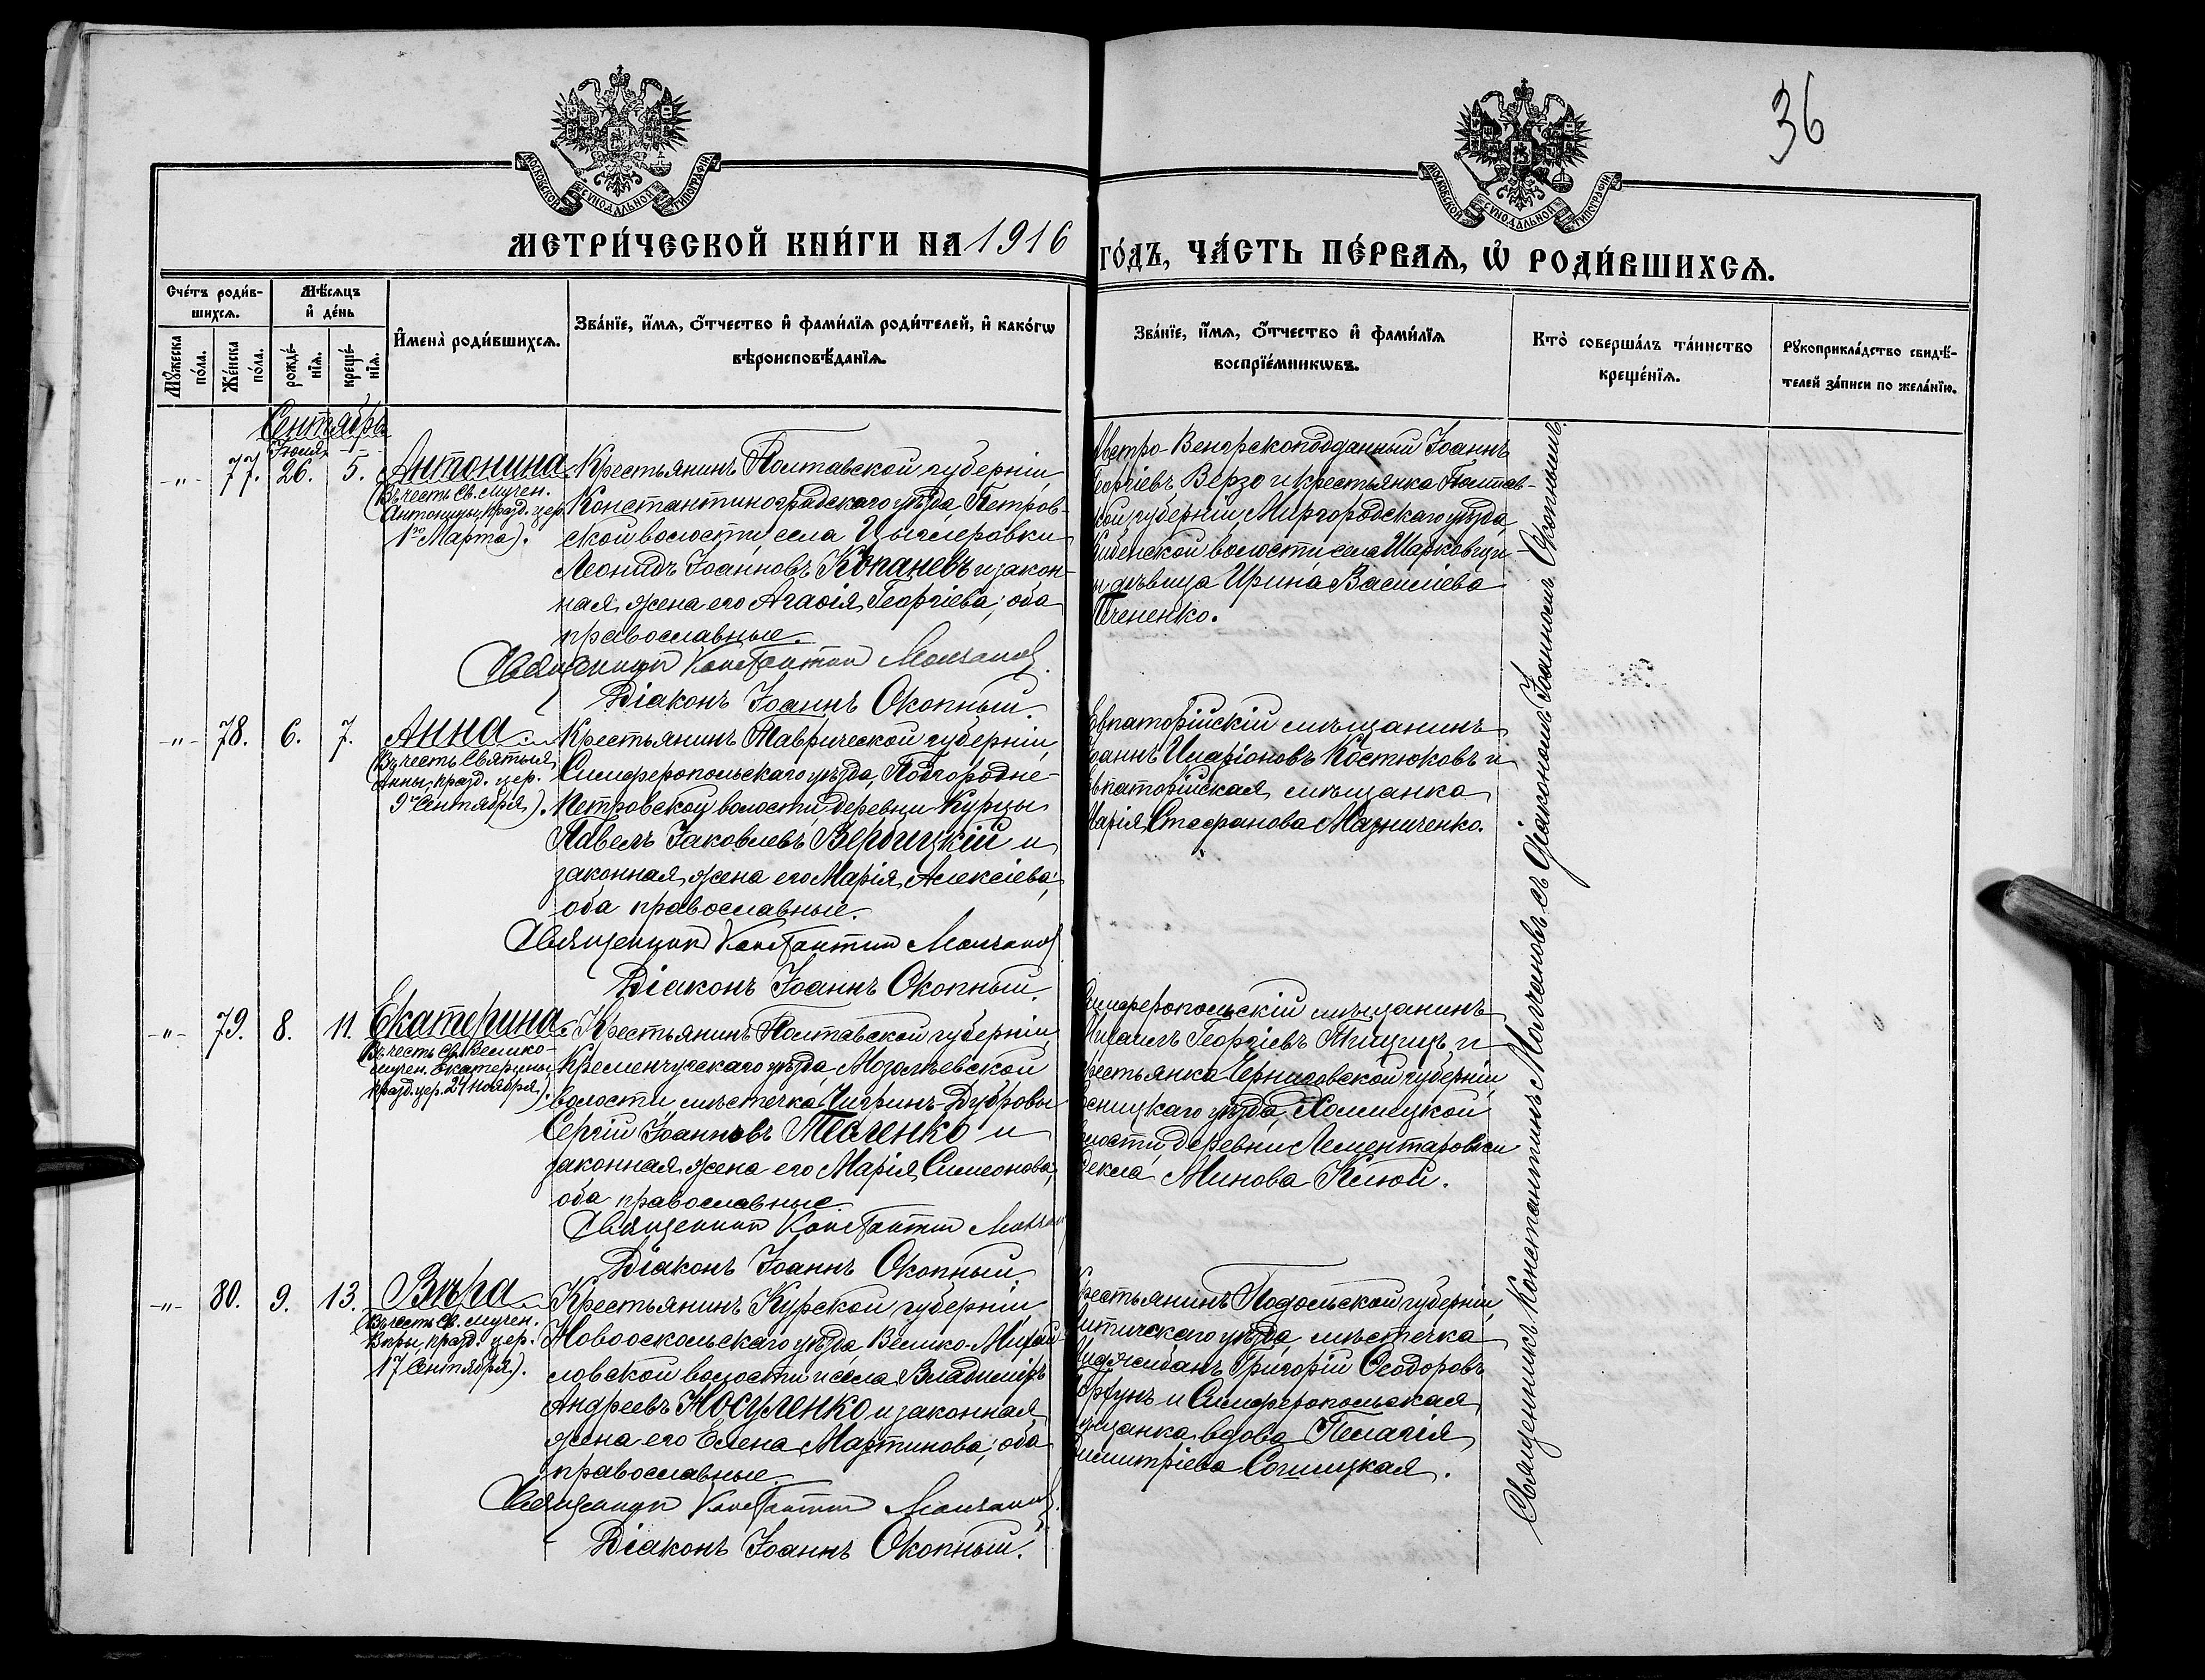 36
МОСКОВСКОЙ СѴНОДАЛЬНОЙ ТИПОГРАФІИ
МОСКОВСКОЙ СѴНОДАЛЬНОЙ ТИПОГРАФІИ
МЕТРИ́ЧЕСКОЙ КНИ́ГИ НА 1916 ГО́ДЪ, ЧА́СТЬ ПЕ́РВАѦ, Ѡ҆ РОДИ́ВШИХСѦ.
Сче́тъ роди́в-
шихсѧ.
Мꙋ́жеска по́ла.
Же́нска по́ла.
Мѣ́сѧцъ
и҆ де́нь
рожде́-
нїѧ.
креще́-
нїѧ.
И҆мена̀ роди́вшихсѧ.
Зва́нїе, и҆́мѧ, ѻ҆́тчество и҆ фами́лїѧ роди́телей, и҆ како́гѡ
вѣроисповѣ́данїѧ.
Зва́нїе, и҆́мѧ, ѻ҆́тчество и҆ фами́лїѧ
воспрїе́мникѡвъ.
Кто̀ соверша́лъ та́инство
креще́нїѧ.
Рꙋкоприкла́дство свидѣ́-
телей за́писи по жела́нїю.
Сентябрь
Іюля
-"- 77. 26. 5. Антонина
(Въ честь Св. мучен.
Антонины, празд. цер.
1го Марта).
Крестьянинъ Полтавской губерніи,
Константиноградскаго уѣзда, Петров-
ской волости, села
Леонидъ Іоанновъ Копаневъ и закон-
ная жена его Агаѳія Георгіева; оба
православные.
Священникъ Константинъ Молчановъ.
Діаконъ Іоаннъ Окопный.
Австро-Венгерскоподданный Іоаннъ
Георгіевъ Верзо и крестьянка Полтав-
ской губерніи, Миргородскаго уѣзда,
волости, села Шарковщи-
ны дѣвица Ирина Василіева
-"- 78. 6. 7. Анна
(Въ честь Святыя
Анны, празд. цер.
9го Сентября).
Крестьянинъ Таврической губерніи,
Симферопольскаго уѣзда, Подгородне-
Петровской волости, деревни Курцы
Павелъ Іаковлевъ Вербицкій и
законная жена его Марія Алексіева;
оба православные.
Священникъ Константинъ Молчановъ
Діаконъ Іоаннъ Окопный.
Евпаторійскій мѣщанинъ
Іоаннъ Иларіоновъ Костюковъ и
Евпаторійская мѣщанка
Марія Стефанова Мазниченко.
-"- 79. 8. 11. Екатерина
(Въ честь Св. Велико-
мучен. Екатерины,
празд. цер. 24 ноября).
Крестьянинъ Полтавской губерніи,
Кременчугскаго уѣзда,
волости, мѣстечка Чигринъ-Дубровы
Сергій Іоанновъ Тесленко и
законная жена его Марія Симеонова;
оба православные.
Священникъ Константинъ Молчанов
Діаконъ Іоаннъ Окопный.
Симферопольскій мѣщанинъ
Михаилъ Георгіевъ и
крестьянка Черниговской губерніи,
Сосницкаго уѣзда, Холмицкой
волости, деревни Лементаровки
Ѳекла Минова
-"- 80. 9. 13. Вѣра
(Въ честь Св. мучен.
Вѣры, празд. цер.
17 Сентября).
Крестьянинъ Курской губерніи,
Новооскольскаго уѣзда, Велико-Михай-
ловской волости и села Владиміръ
Андреевъ Носуленко и законная
жена его Елена Мартинова; оба
православные.
Священникъ Константинъ Молчановъ.
Діаконъ Іоаннъ Окопный.
Крестьянинъ Подольской губерніи,
Литинскаго уѣзда, мѣстечка
Григорій Ѳеодоровъ
и Симферопольская
мѣщанка вдова Пелагія
Димитріева
Священникъ Константинъ Молчановъ съ діакономъ Іоанномъ Окопнымъ.